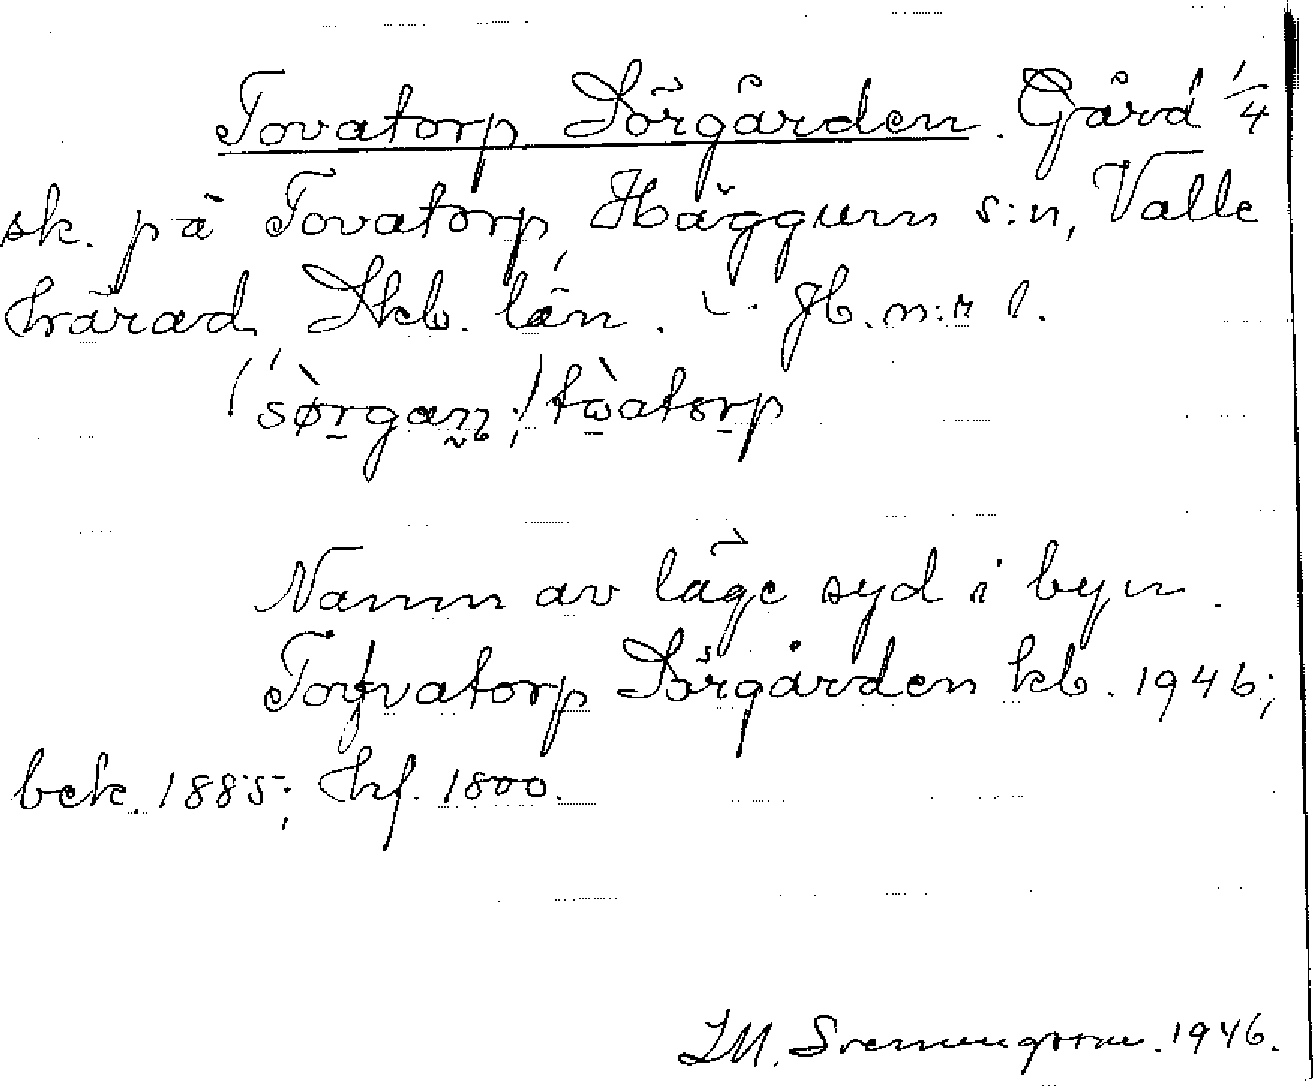 Tovatorp Sörgården. Gård 1/4
sk. på Tovatorp, Häggum s:n, Valle
härad, Skb. län. Jb. n:r 1.
(sòrgan;) tòatorp
Namn av läge syd i byn.
Torfvatorp Sörgården kb. 1946;
bek. 1885; hf. 1800.
1946.